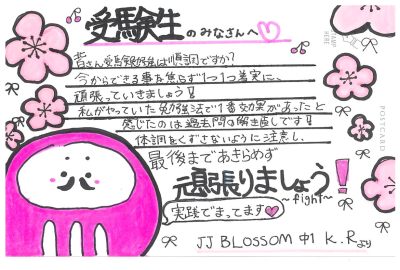 受験生のみなさんへ♡
皆さん受験勉強は順調ですか?
今からできる事を焦らず1つ1つ着実に、
頑張っていきましょう!!
私がやっていた勉強法で1番効果があったと
感じたのは過去問の解き直しです!!
体調をくずさないように注意し、
最後まであきらめず
頑張りましょう!
~fight~
実践でまってます♡
JJ BLOSSOM 中1 K.Rより
POSTCARD